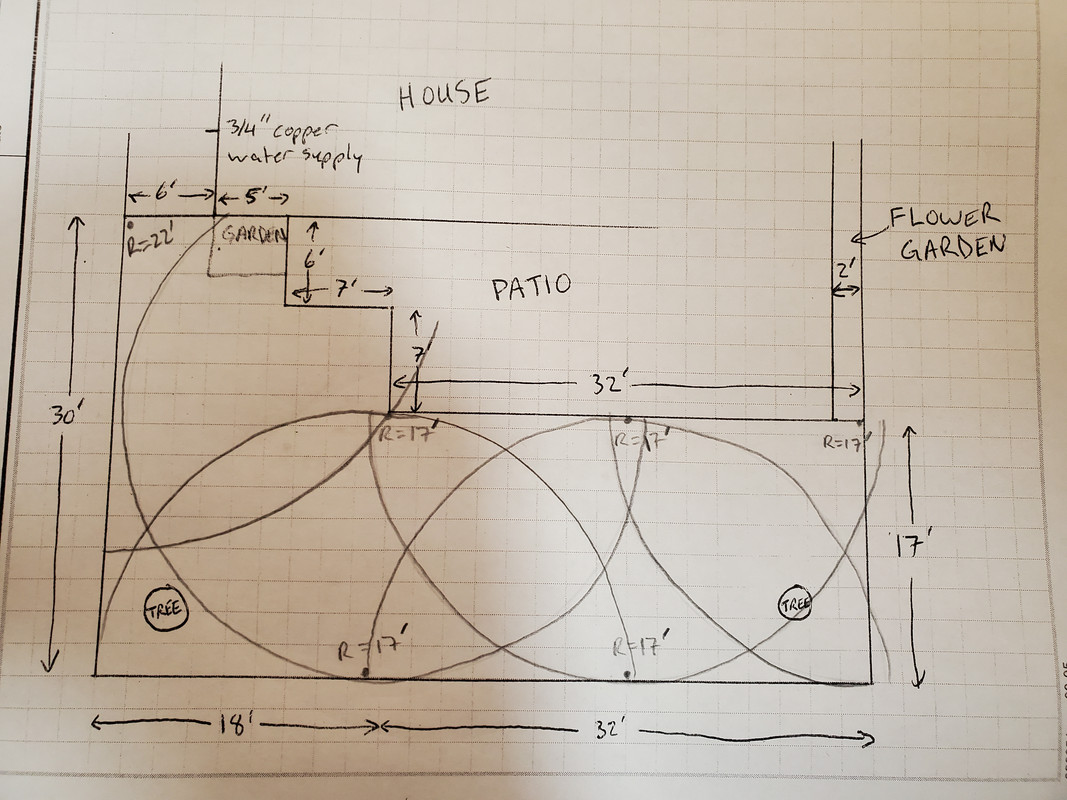 HOUSE
3/4" copper
water supply
6'
5'
FLOWER
GARDEN
R=22'
GARDEN
6'
2'
PATIO
7'
7'
32'
30'
R=17'
R=17'
R=17'
17'
TREE
TREE
R=17'
R=17'
18'
32'